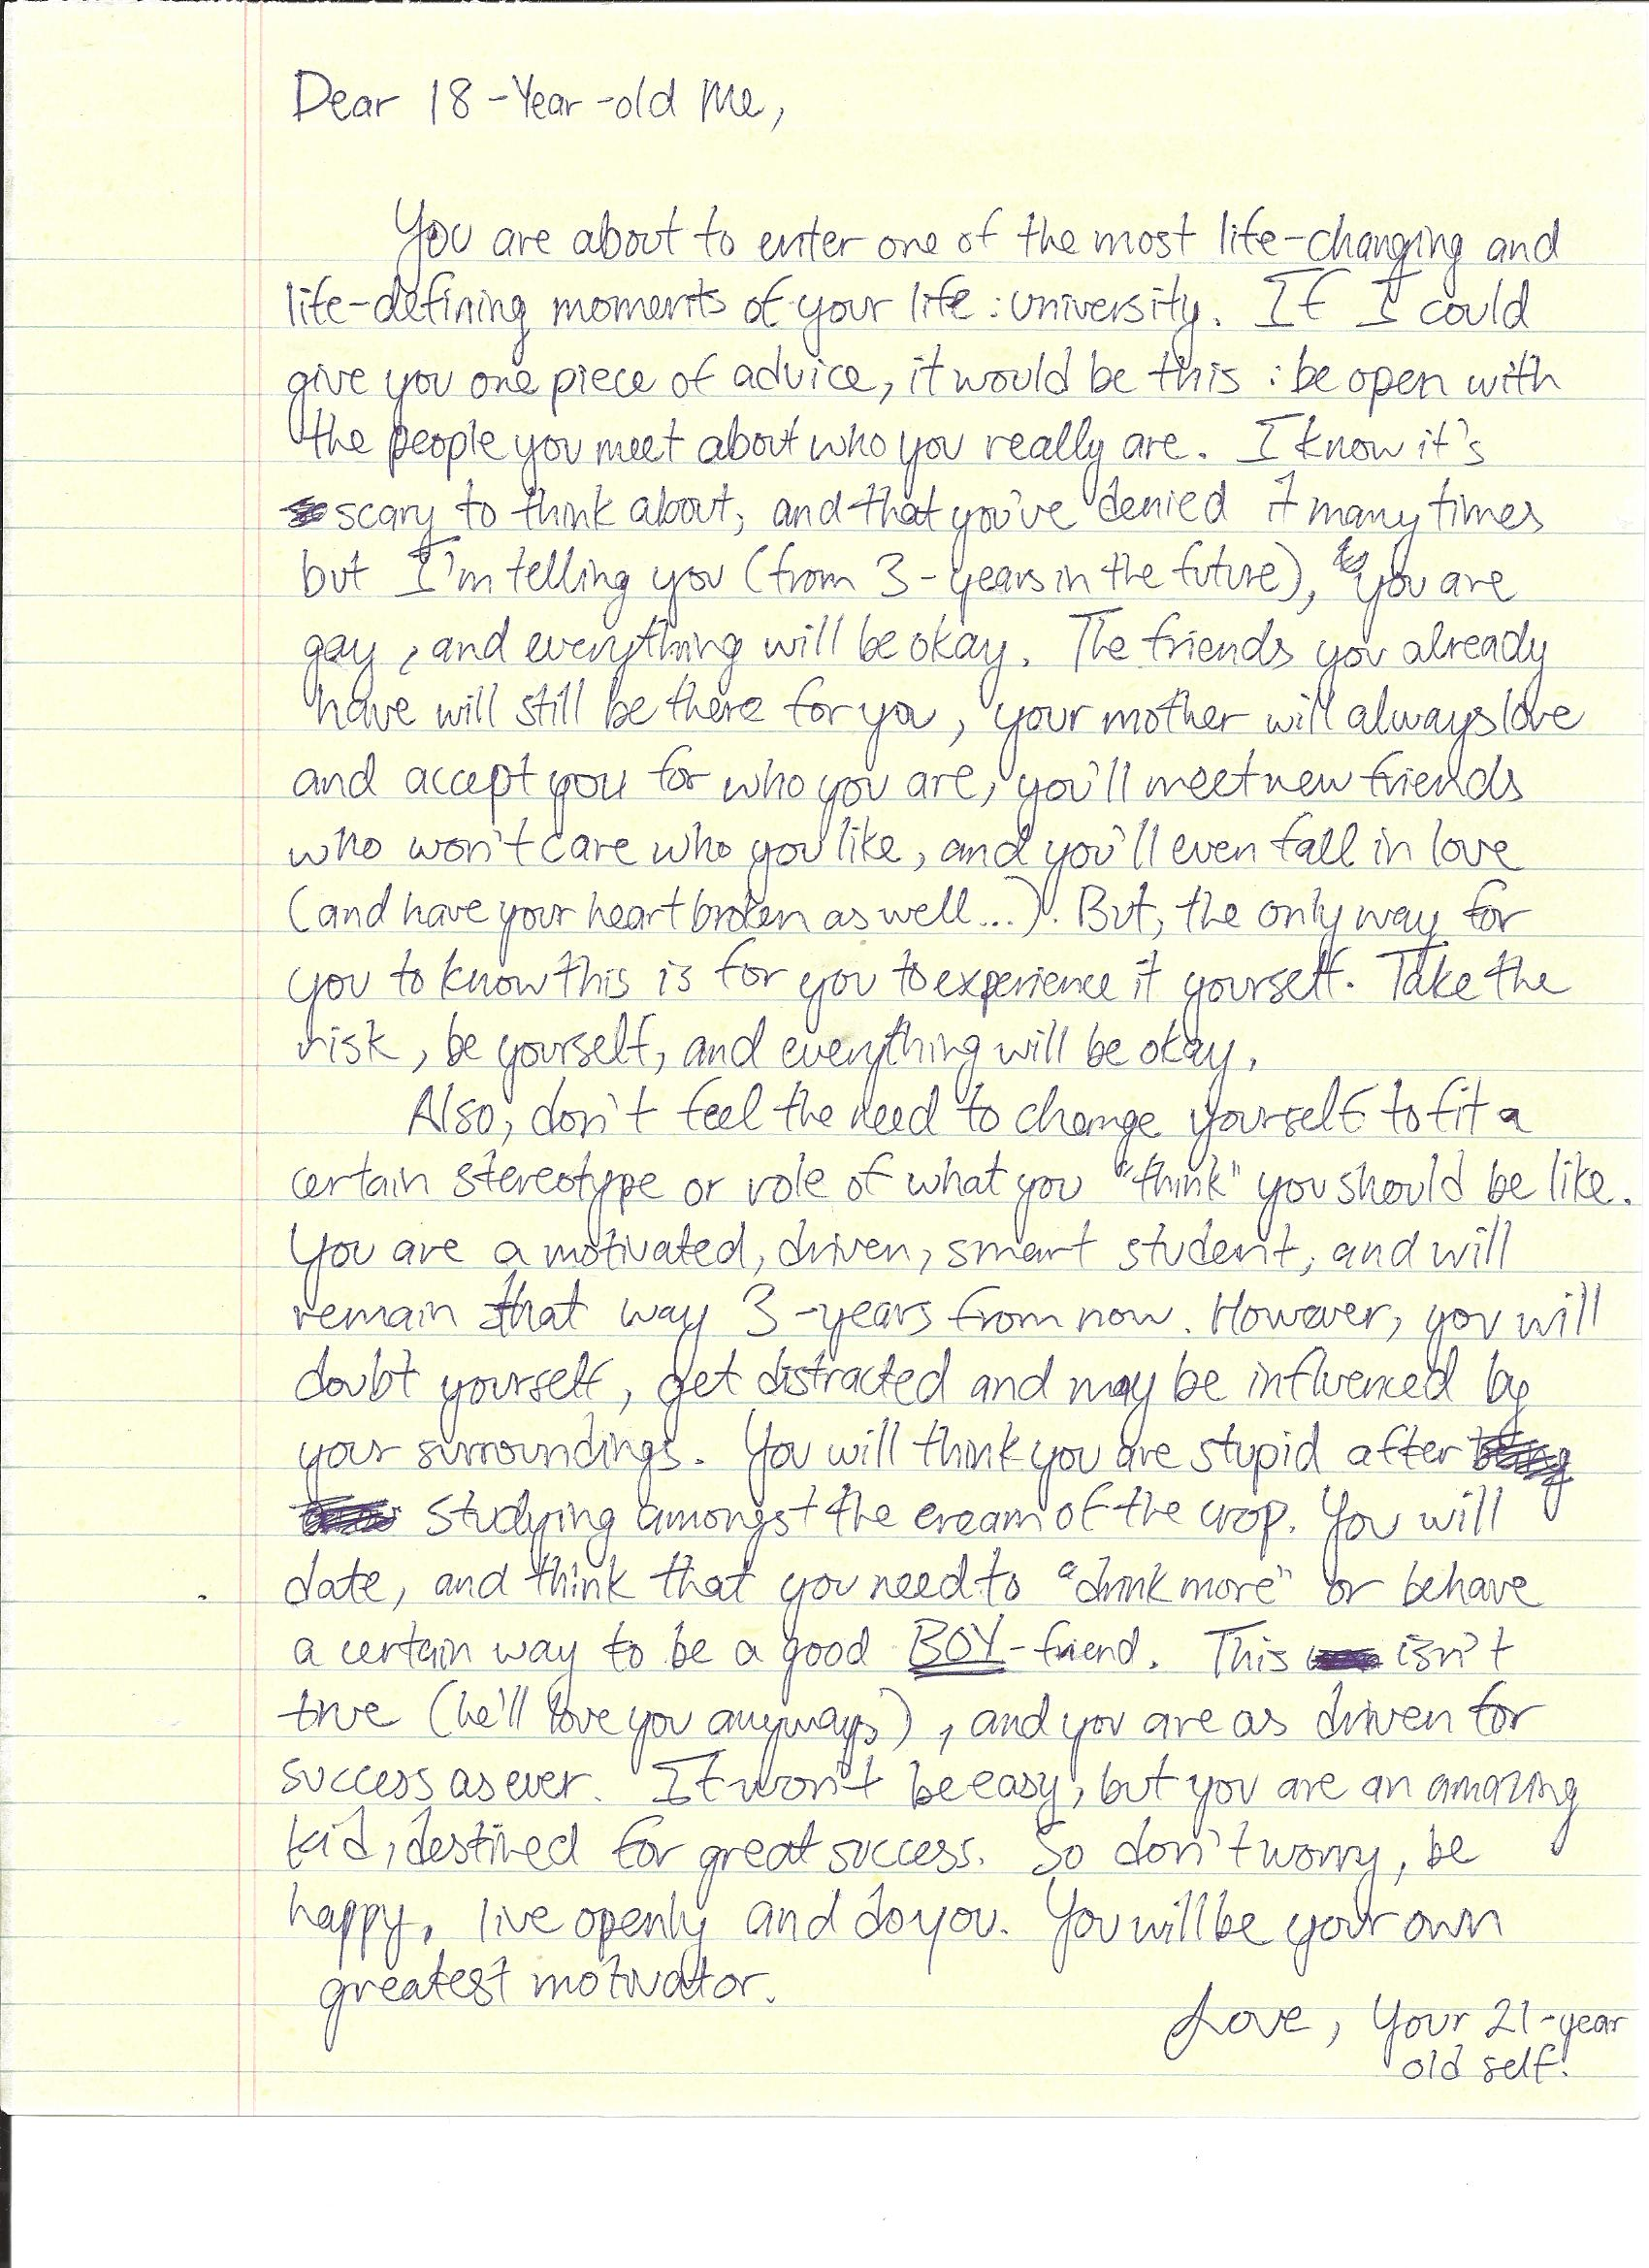 Dear 18-Year-old Me,
You are about to enter one of the most life-changing and
life-defining moments of your life: university. If I could
give you one piece of advice, it would be this: be open with
the people you meet about who you really are. I know it's
scary to think about, and that you've denied it many times
but I'm telling you (from 3-years in the future), you are
gay, and everything will be okay. The friends you already
have will still be there for you, your mother will always love
and accept you for who you are, you'll meet new friends
who won't care who you like, and you'll even fall in love
(and have your heart broken as well...). But, the only way for
you to know this is for you to experience it yourself. Take the
risk, be yourself, and everything will be okay.
Also, don't feel the need to change yourself to fit a
certain stereotype or role of what you "think" you should be like.
You are a motivated, driven, smart student, and will
remain that way 3-years from now. However, you will
doubt yourself, get distracted and may be influenced by
your surroundings. You will think you are stupid after
studying amongst the cream of the crop. You will
date, and think that you need to "drink more" or behave
a certain way to be a good BOY-friend. This isn't
true (he'll love you anyways), and you are as driven for
success as ever. It won't be easy, but you are an amazing
kid, destined for great success. So don't worry, be
happy, live openly and do you. You will be your own
greatest motivator.
Love, Your 21-year
old self.